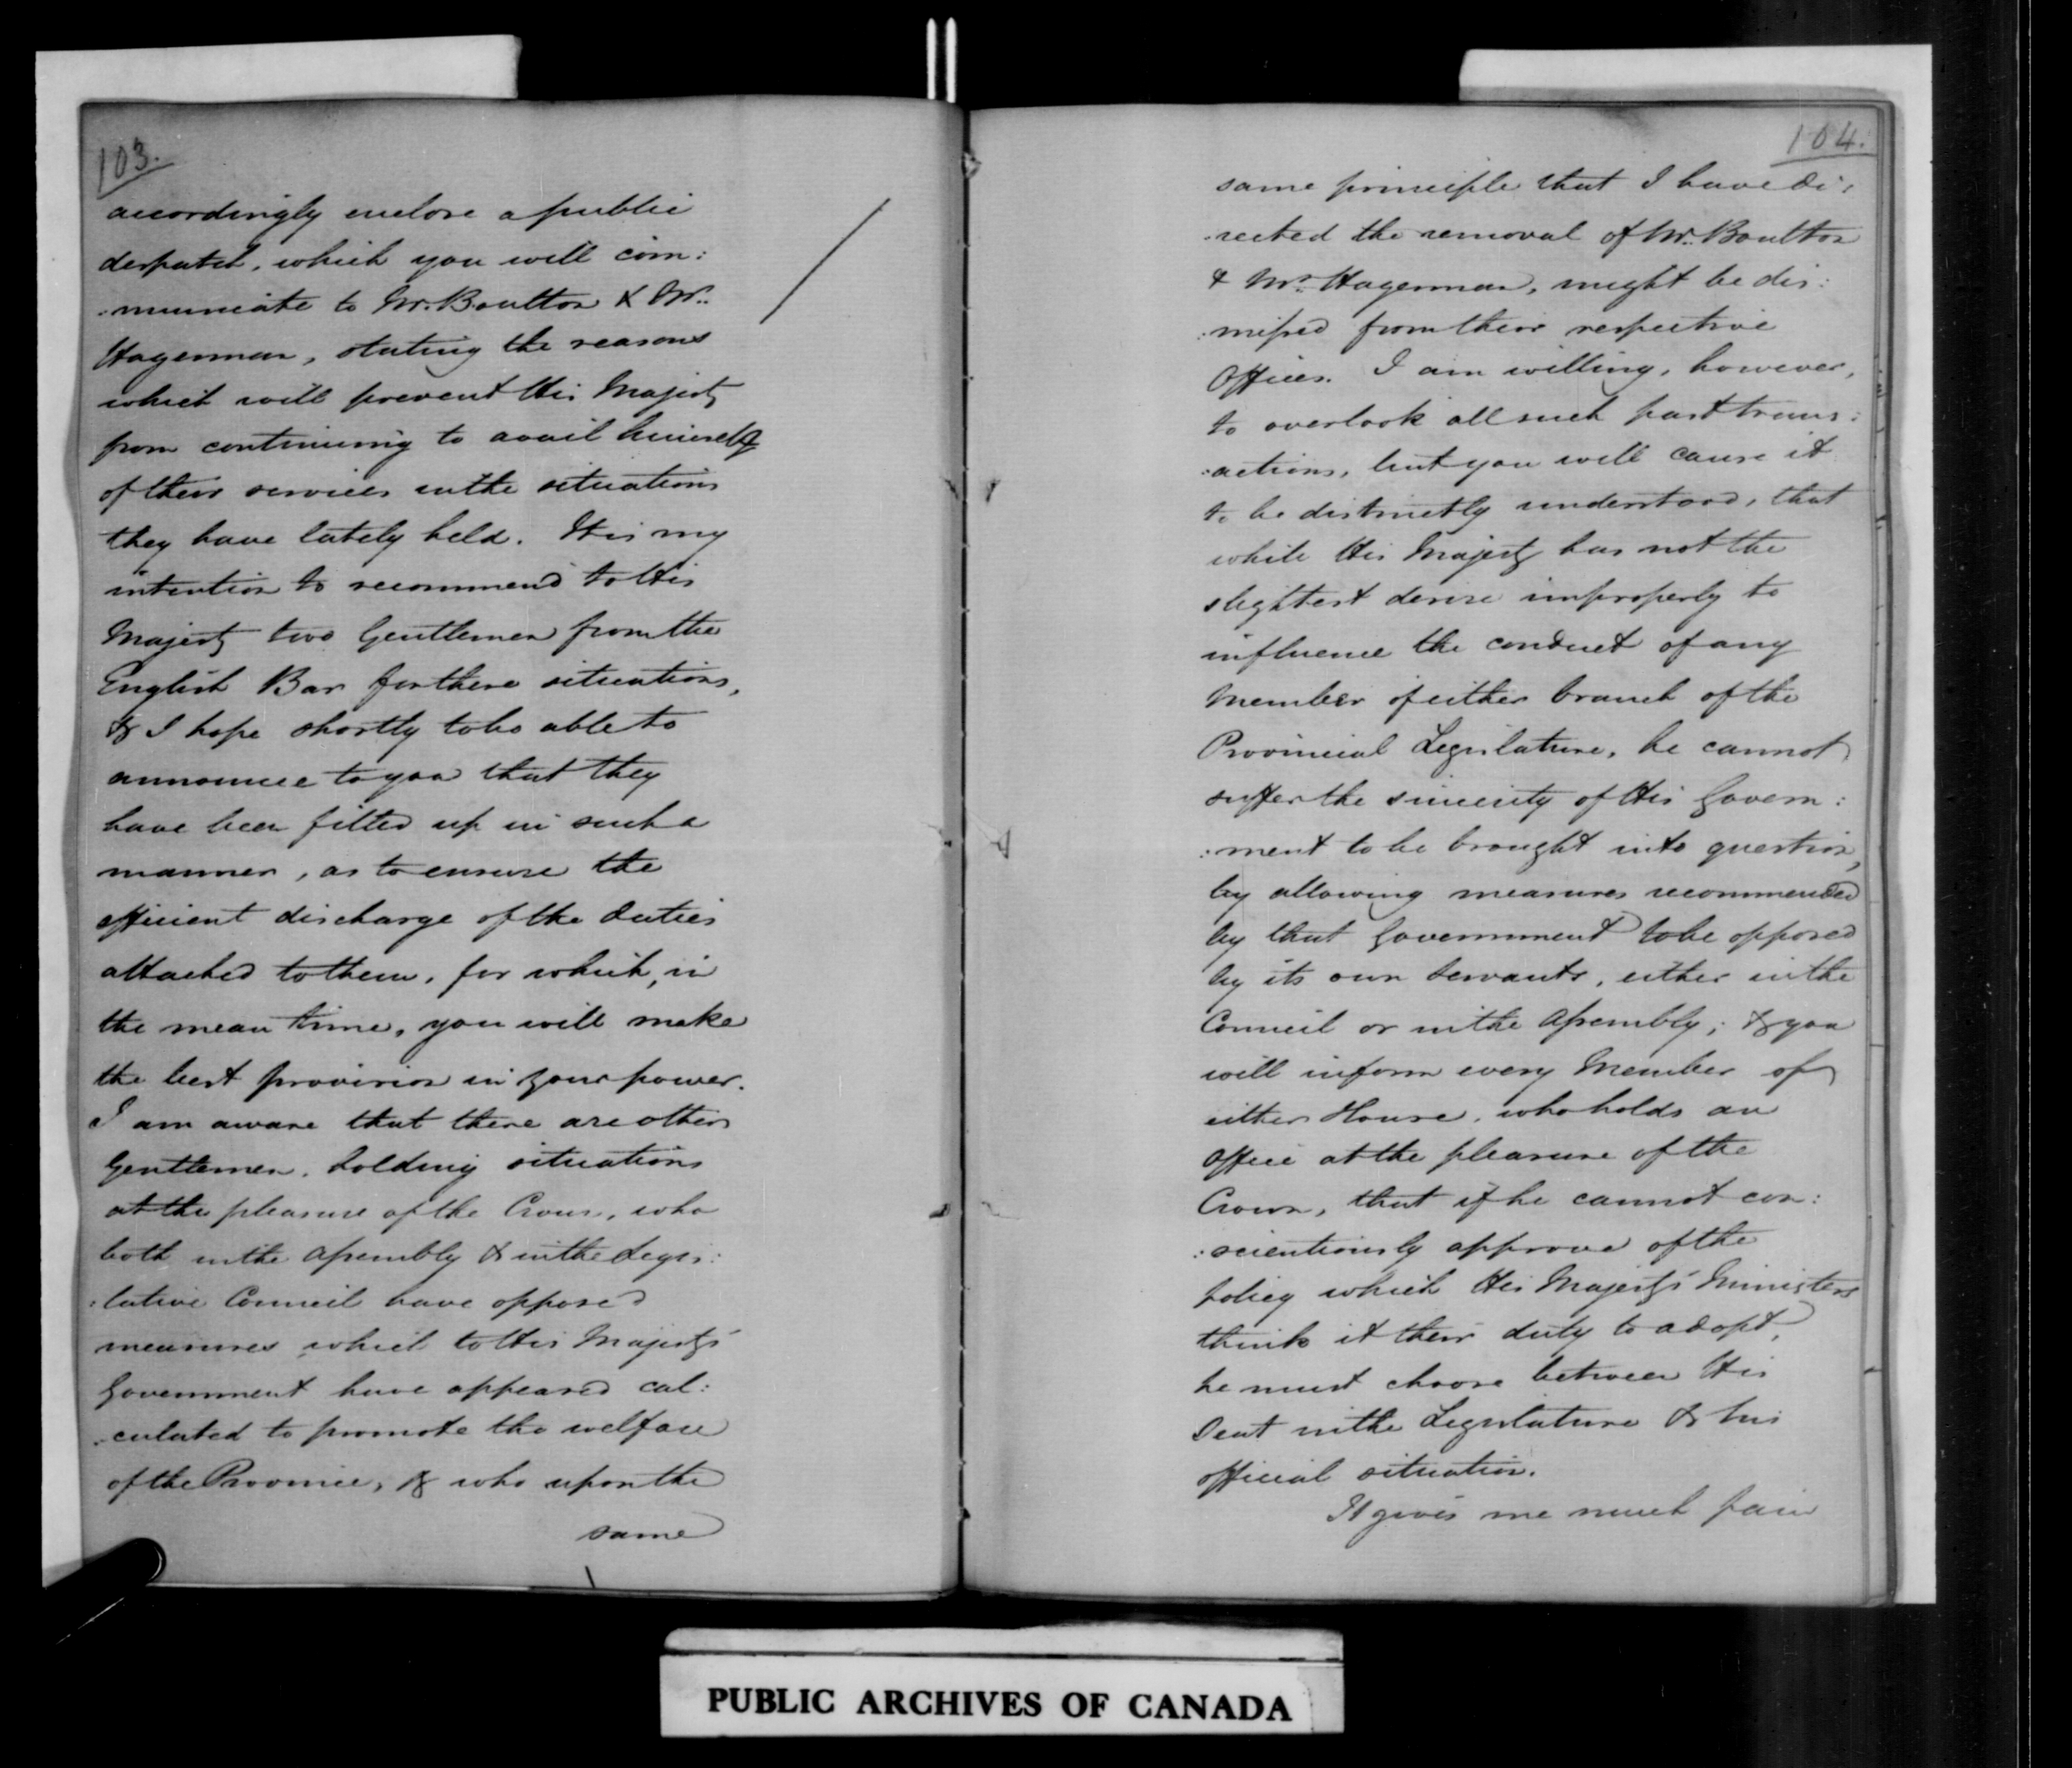 103.
accordingly enclose a public
despatch, which you will com:
:municate to Mr. Boulton & Mr.
Hagerman, stating the reasons
which will prevent His Majesty
from continuing to avail himself
of their services in the situations
they have lately held. It is my
intention to recommend to His
Majesty two Gentlemen from the
English Bar for these situations,
& I hope shortly to be able to
announce to you that they
have been filled up in such a
manner, as to ensure the
efficient discharge of the duties
attached to them, for which, in
the mean time, you will make
the best provision in your power.
I am aware that there are other
Gentlemen, holding situations
at the pleasure of the Crown, who
both in the Assembly & in the Legis:
:lative Council have opposed
measures which to His Majesty's
Government have appeared cal:
:culated to promote the welfare
of the Province, & who upon the
same
104.
same principle that I have di:
:rected the removal of Mr. Boulton
& Mr. Hagerman, might be dis:
:missed from their respective
Offices. I am willing, however,
to overlook all such past trans:
:actions, but you will cause it
to be distinctly understood, that
while His Majesty has not the
slightest desire improperly to
influence the conduct of any
Member of either branch of the
Provincial Legislature, he cannot
suffer the sincerity of His Govern:
:ment to be brought into question,
by allowing measures recommended
by that Government to be opposed
by its own Servants, either in the
Council or in the Assembly; & you
will inform every Member of
either House, who holds an
Office at the pleasure of the
Crown, that if he cannot con:
:scientiously approve of the
policy which His Majesty's Ministers
think it their duty to adopt,
he must choose between His
Seat in the Legislature & his
official situation.
It gives me much pain
PUBLIC ARCHIVES OF CANADA